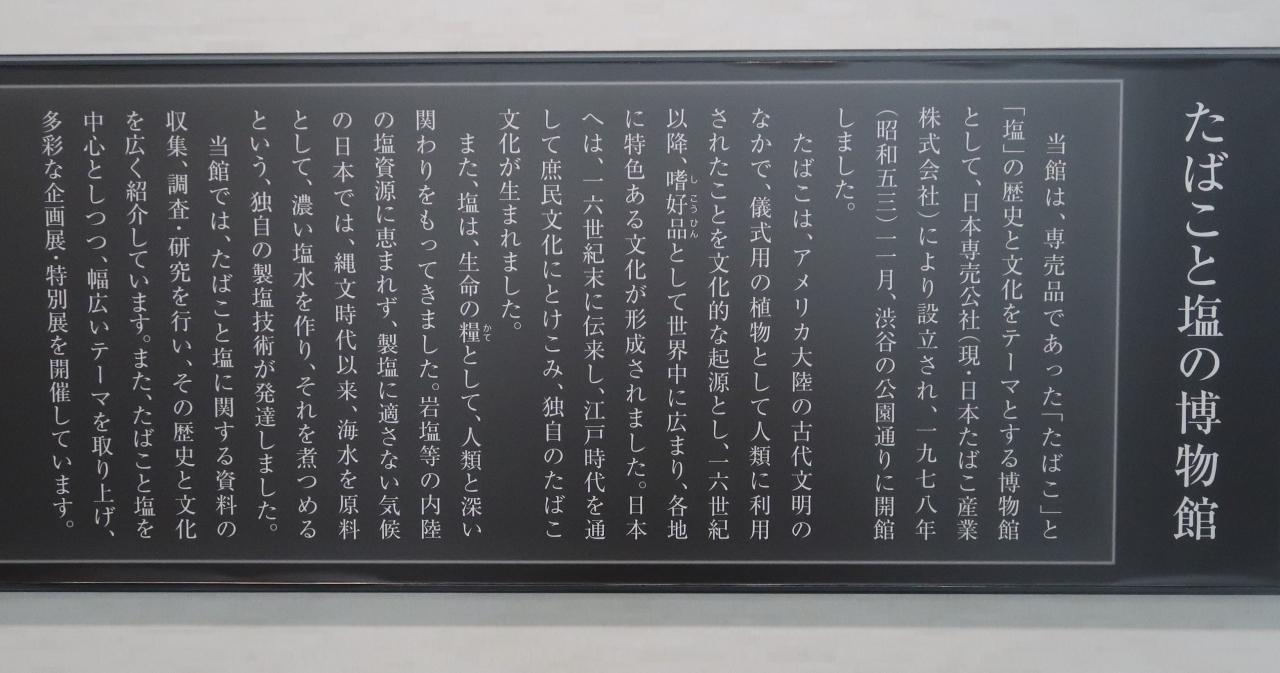 たばこと塩の博物館
当館は、専売品であった「たばこ」と
「塩」の歴史と文化をテーマとする博物館
として、日本専売公社(現・日本たばこ産業
株式会社)により設立され、一九七八年
(昭和五三)一一月、渋谷の公園通りに開館
しました。
たばこは、アメリカ大陸の古代文明の
なかで、儀式用の植物として人類に利用
されたことを文化的な起源とし、一六世紀
以降、嗜好品として世界中に広まり、各地
に特色ある文化が形成されました。日本
へは、一六世紀末に伝来し、江戸時代を通
して庶民文化にとけこみ、独自のたばこ
文化が生まれました。
また、塩は、生命の糧として、人類と深い
関わりをもってきました。岩塩等の内陸
の塩資源に恵まれず、製塩に適さない気候
の日本では、縄文時代以来、海水を原料
として、濃い塩水を作り、それを煮つめる
という、独自の製塩技術が発達しました。
当館では、たばこと塩に関する資料の
収集、調査・研究を行い、その歴史と文化
を広く紹介しています。また、たばこと塩を
中心としつつ、幅広いテーマを取り上げ、
多彩な企画展・特別展を開催しています。